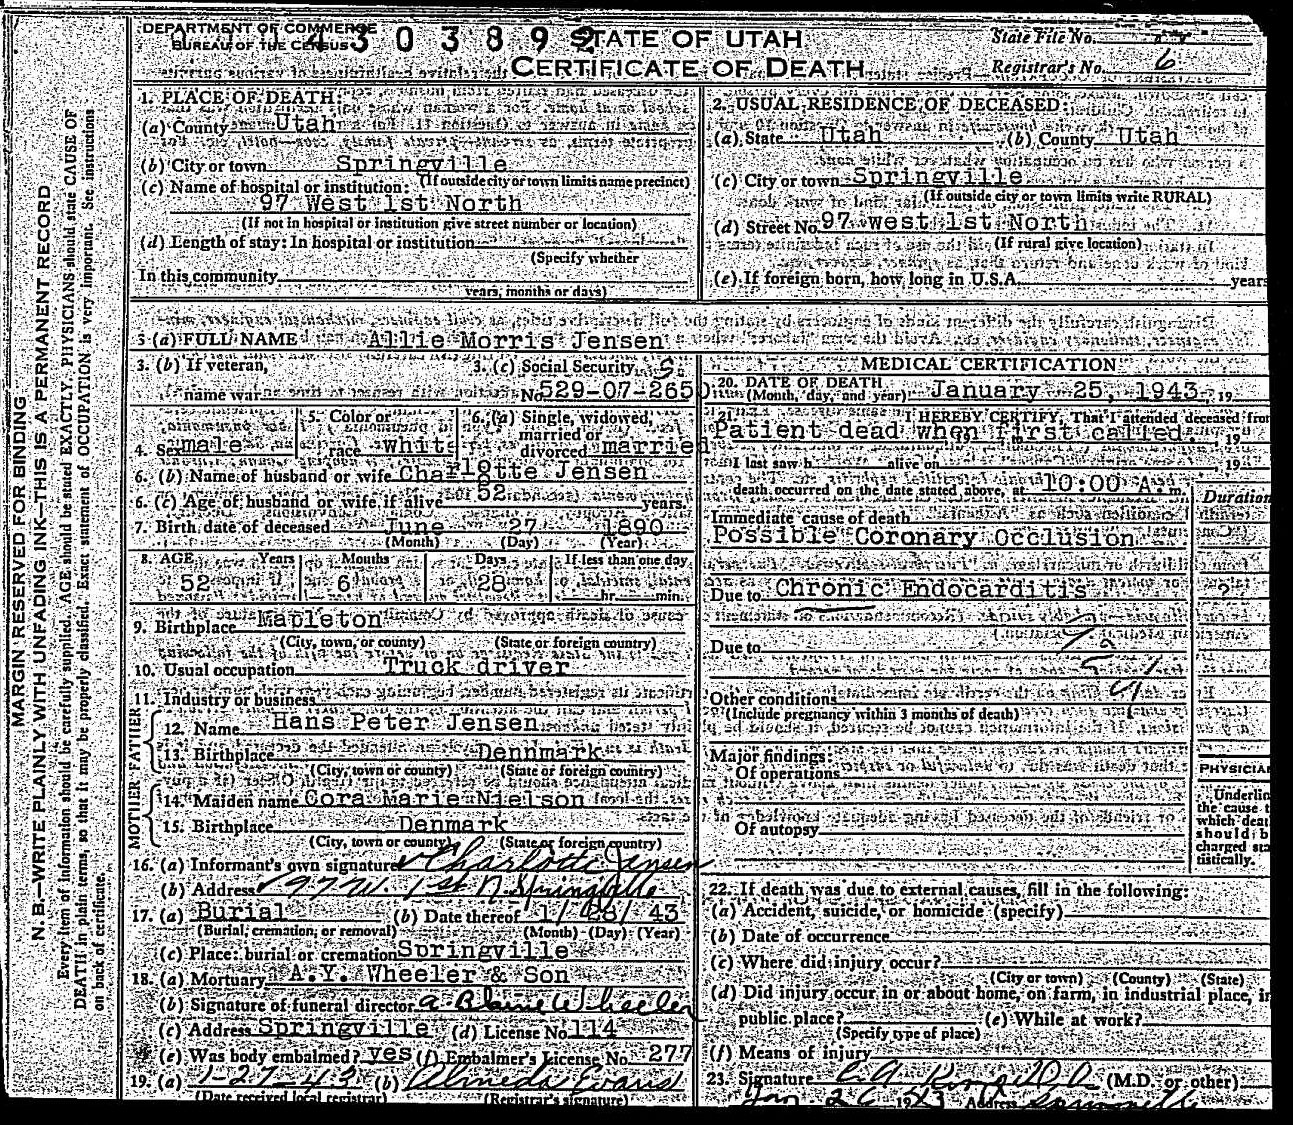 DEPARTMENT OF COMMERCE
BUREAU OF THE CENSUS
430389
STATE OF UTAH
CERTIFICATE OF DEATH
State File No.
Registrar's No. 6
MARGIN RESERVED FOR BINDING
N. B.—WRITE PLAINLY WITH UNFADING INK—THIS IS A PERMANENT RECORD
Every item of information should be carefully supplied. AGE should be stated EXACTLY. PHYSICIANS should state CAUSE OF
DEATH in plain terms, so that it may be properly classified. Exact statement of OCCUPATION is very important. See instructions
on back of certificate.
1. PLACE OF DEATH:
(a) County Utah
(b) City or town Springville
(If outside city or town limits name precinct)
(c) Name of hospital or institution:
97 West 1st North
(If not in hospital or institution give street number or location)
(d) Length of stay: In hospital or institution
(Specify whether
In this community
years, months or days)
2. USUAL RESIDENCE OF DECEASED:
(a) State Utah (b) County Utah
(c) City or town Springville
(If outside city or town limits write RURAL)
(d) Street No. 97 west 1st North
(If rural give location)
(e) If foreign born, how long in U.S.A. years
3 (a) FULL NAME Allie Morris Jensen
3. (b) If veteran,
name war
3. (c) Social Security
No. 529-07-2650
4. Sex male
5. Color or
race white
6. (a) Single, widowed,
married or
divorced married
6. (b) Name of husband or wife Charlotte Jensen
6. (c) Age of husband or wife if alive 52 years.
7. Birth date of deceased June 27 1890
(Month) (Day) (Year)
8. AGE Years Months Days If less than one day
52 6 28 hr. min.
9. Birthplace Mapleton
(City, town, or county) (State or foreign country)
10. Usual occupation Truck driver
11. Industry or business
FATHER
12. Name Hans Peter Jensen
13. Birthplace Dennmark
(City, town or county) (State or foreign country)
MOTHER
14. Maiden name Cora Marie Nielson
15. Birthplace Denmark
(City, town or county) (State or foreign country)
16. (a) Informant's own signature Charlotte Jensen
(b) Address 97 W. 1st N. Springville
17. (a) Burial (b) Date thereof 1/ 28/ 43
(Burial, cremation, or removal) (Month) (Day) (Year)
(c) Place: burial or cremation Springville
18. (a) Mortuary A.Y. Wheeler & Son
(b) Signature of funeral director A. Blaine Wheeler
(c) Address Springville (d) License No. 114
(e) Was body embalmed? yes (f) Embalmer's License No. 277
19. (a) 1-27-43 (b) Almeda Evans
(Date received local registrar) (Registrar's signature)
MEDICAL CERTIFICATION
20. DATE OF DEATH
(Month, day, and year) January 25, 1943 19
21. I HEREBY CERTIFY, That I attended deceased from
Patient dead when first called. 19
I last saw h alive on , 19
death occurred on the date stated above, at 10:00 A. m.
Duration
Immediate cause of death
Possible Coronary Occlusion
Due to Chronic Endocarditis ?
Due to
Other conditions
(Include pregnancy within 3 months of death)
Major findings:
Of operations
Of autopsy
PHYSICIAN
Underlin
the cause t
which deat
should b
charged sta
tistically.
22. If death was due to external causes, fill in the following:
(a) Accident, suicide, or homicide (specify)
(b) Date of occurrence
(c) Where did injury occur?
(City or town) (County) (State)
(d) Did injury occur in or about home, on farm, in industrial place, in
public place? (e) While at work?
(Specify type of place)
(f) Means of injury
23. Signature (M.D. or other)
Jan 26 1943 Address Springville